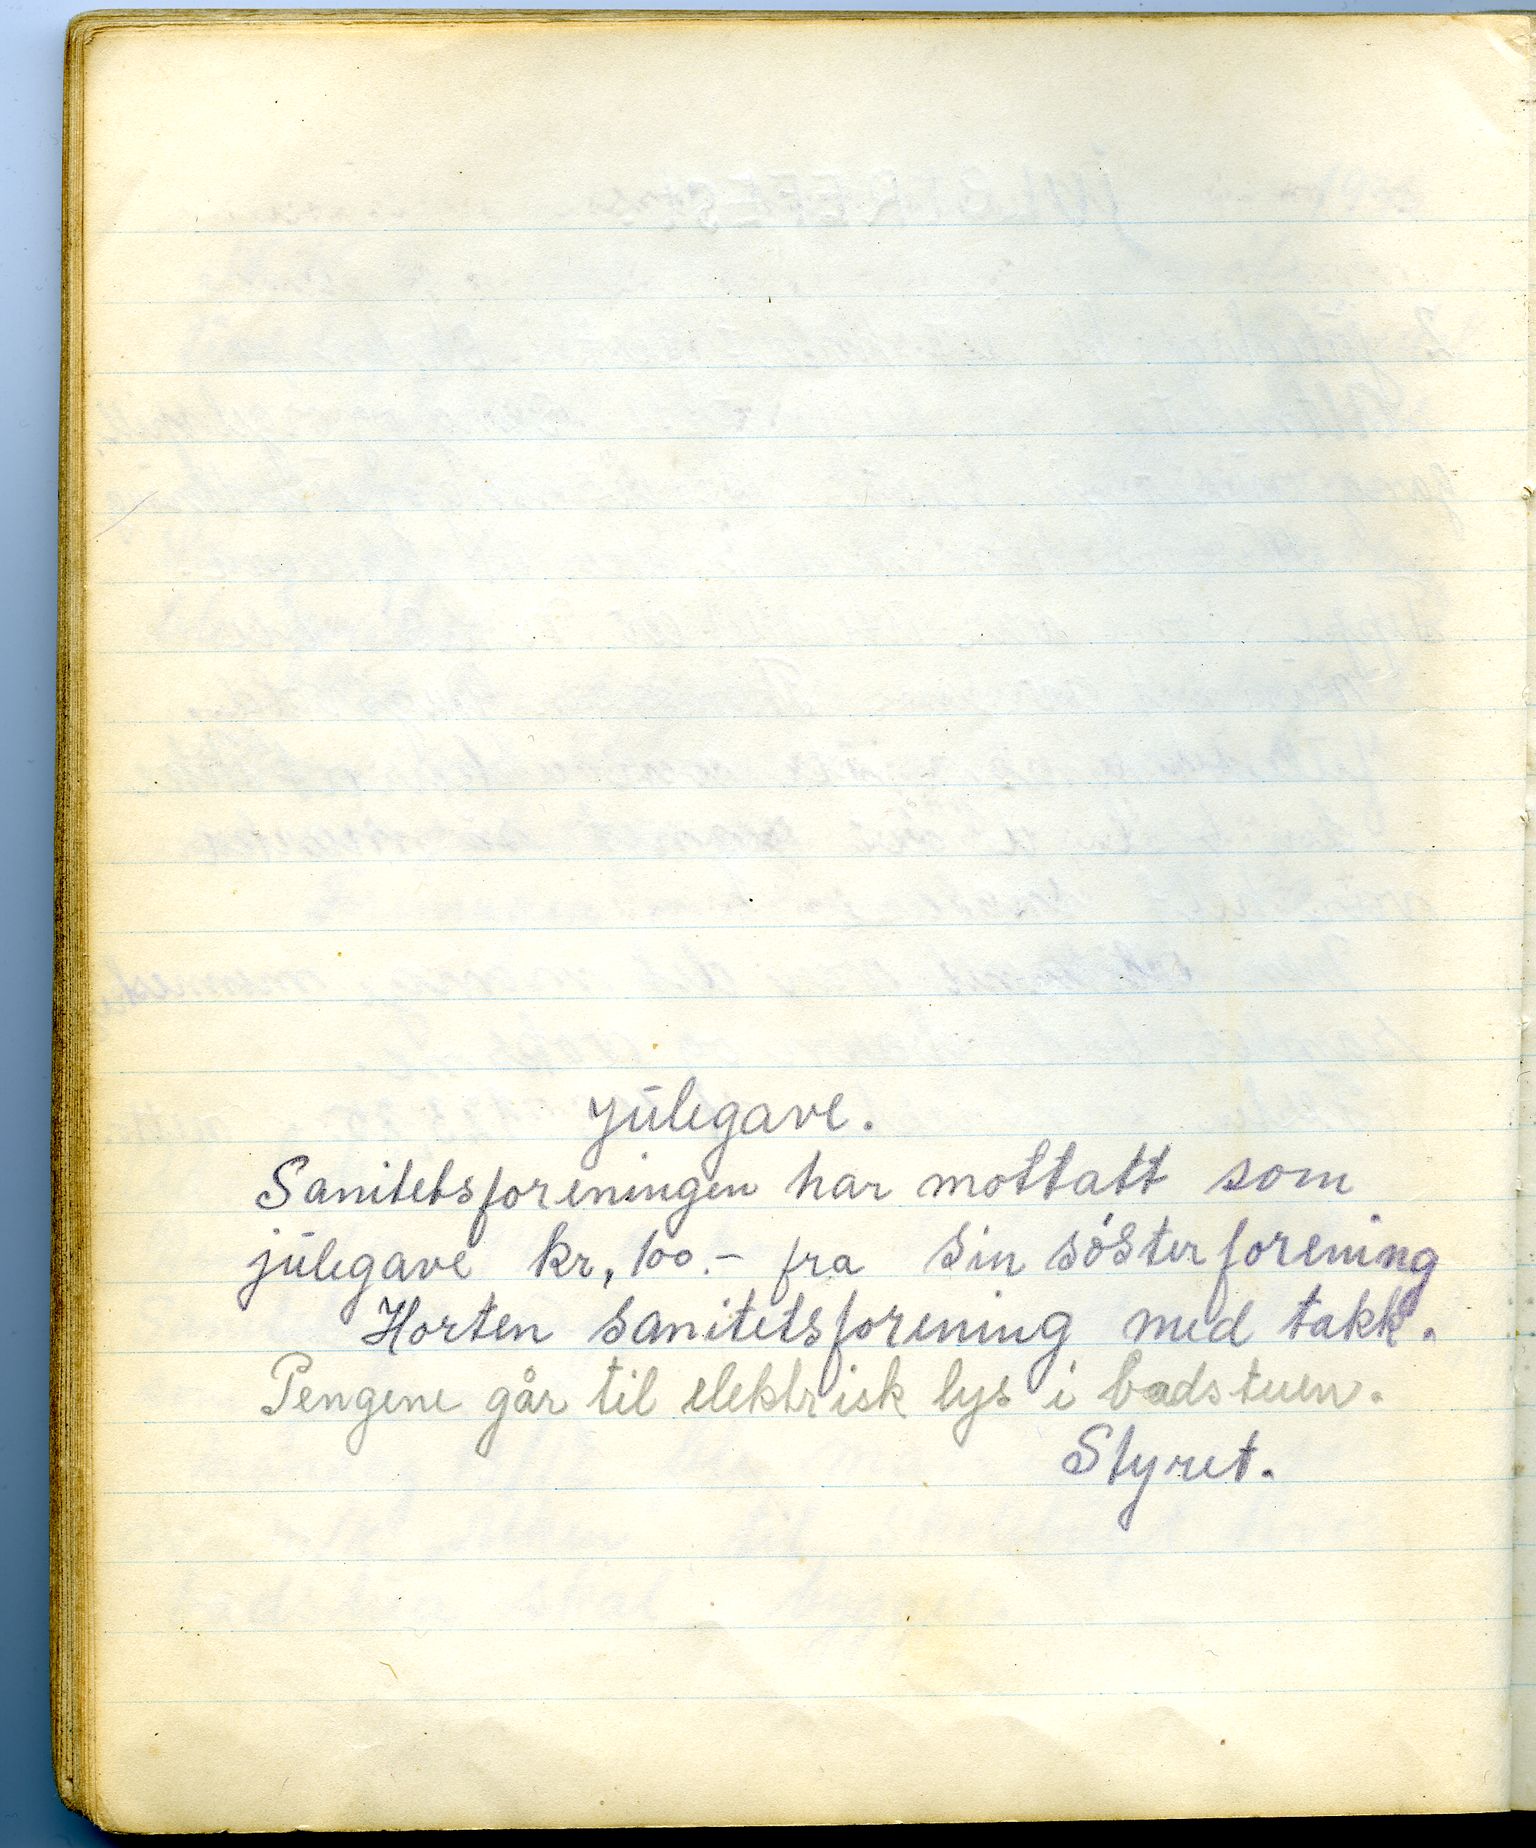 Julegave.
Sanitetsforeningen har mottatt som
julegave kr, 100.- fra sin sósterforening
Horten sanitetsforening med takk.
Pengene går til elektrisk lys i badstuen.
Styret.